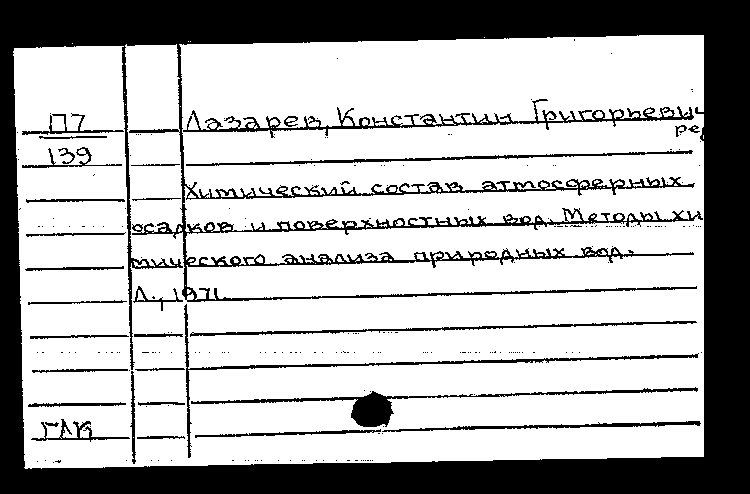 П7
139
Лазарев, Константин Григорьевич
ред
Химический состав атмосферных
осадков и поверхностных вод. Методы хи
мического анализа природных вод.
Л., 1971.
ГЛК